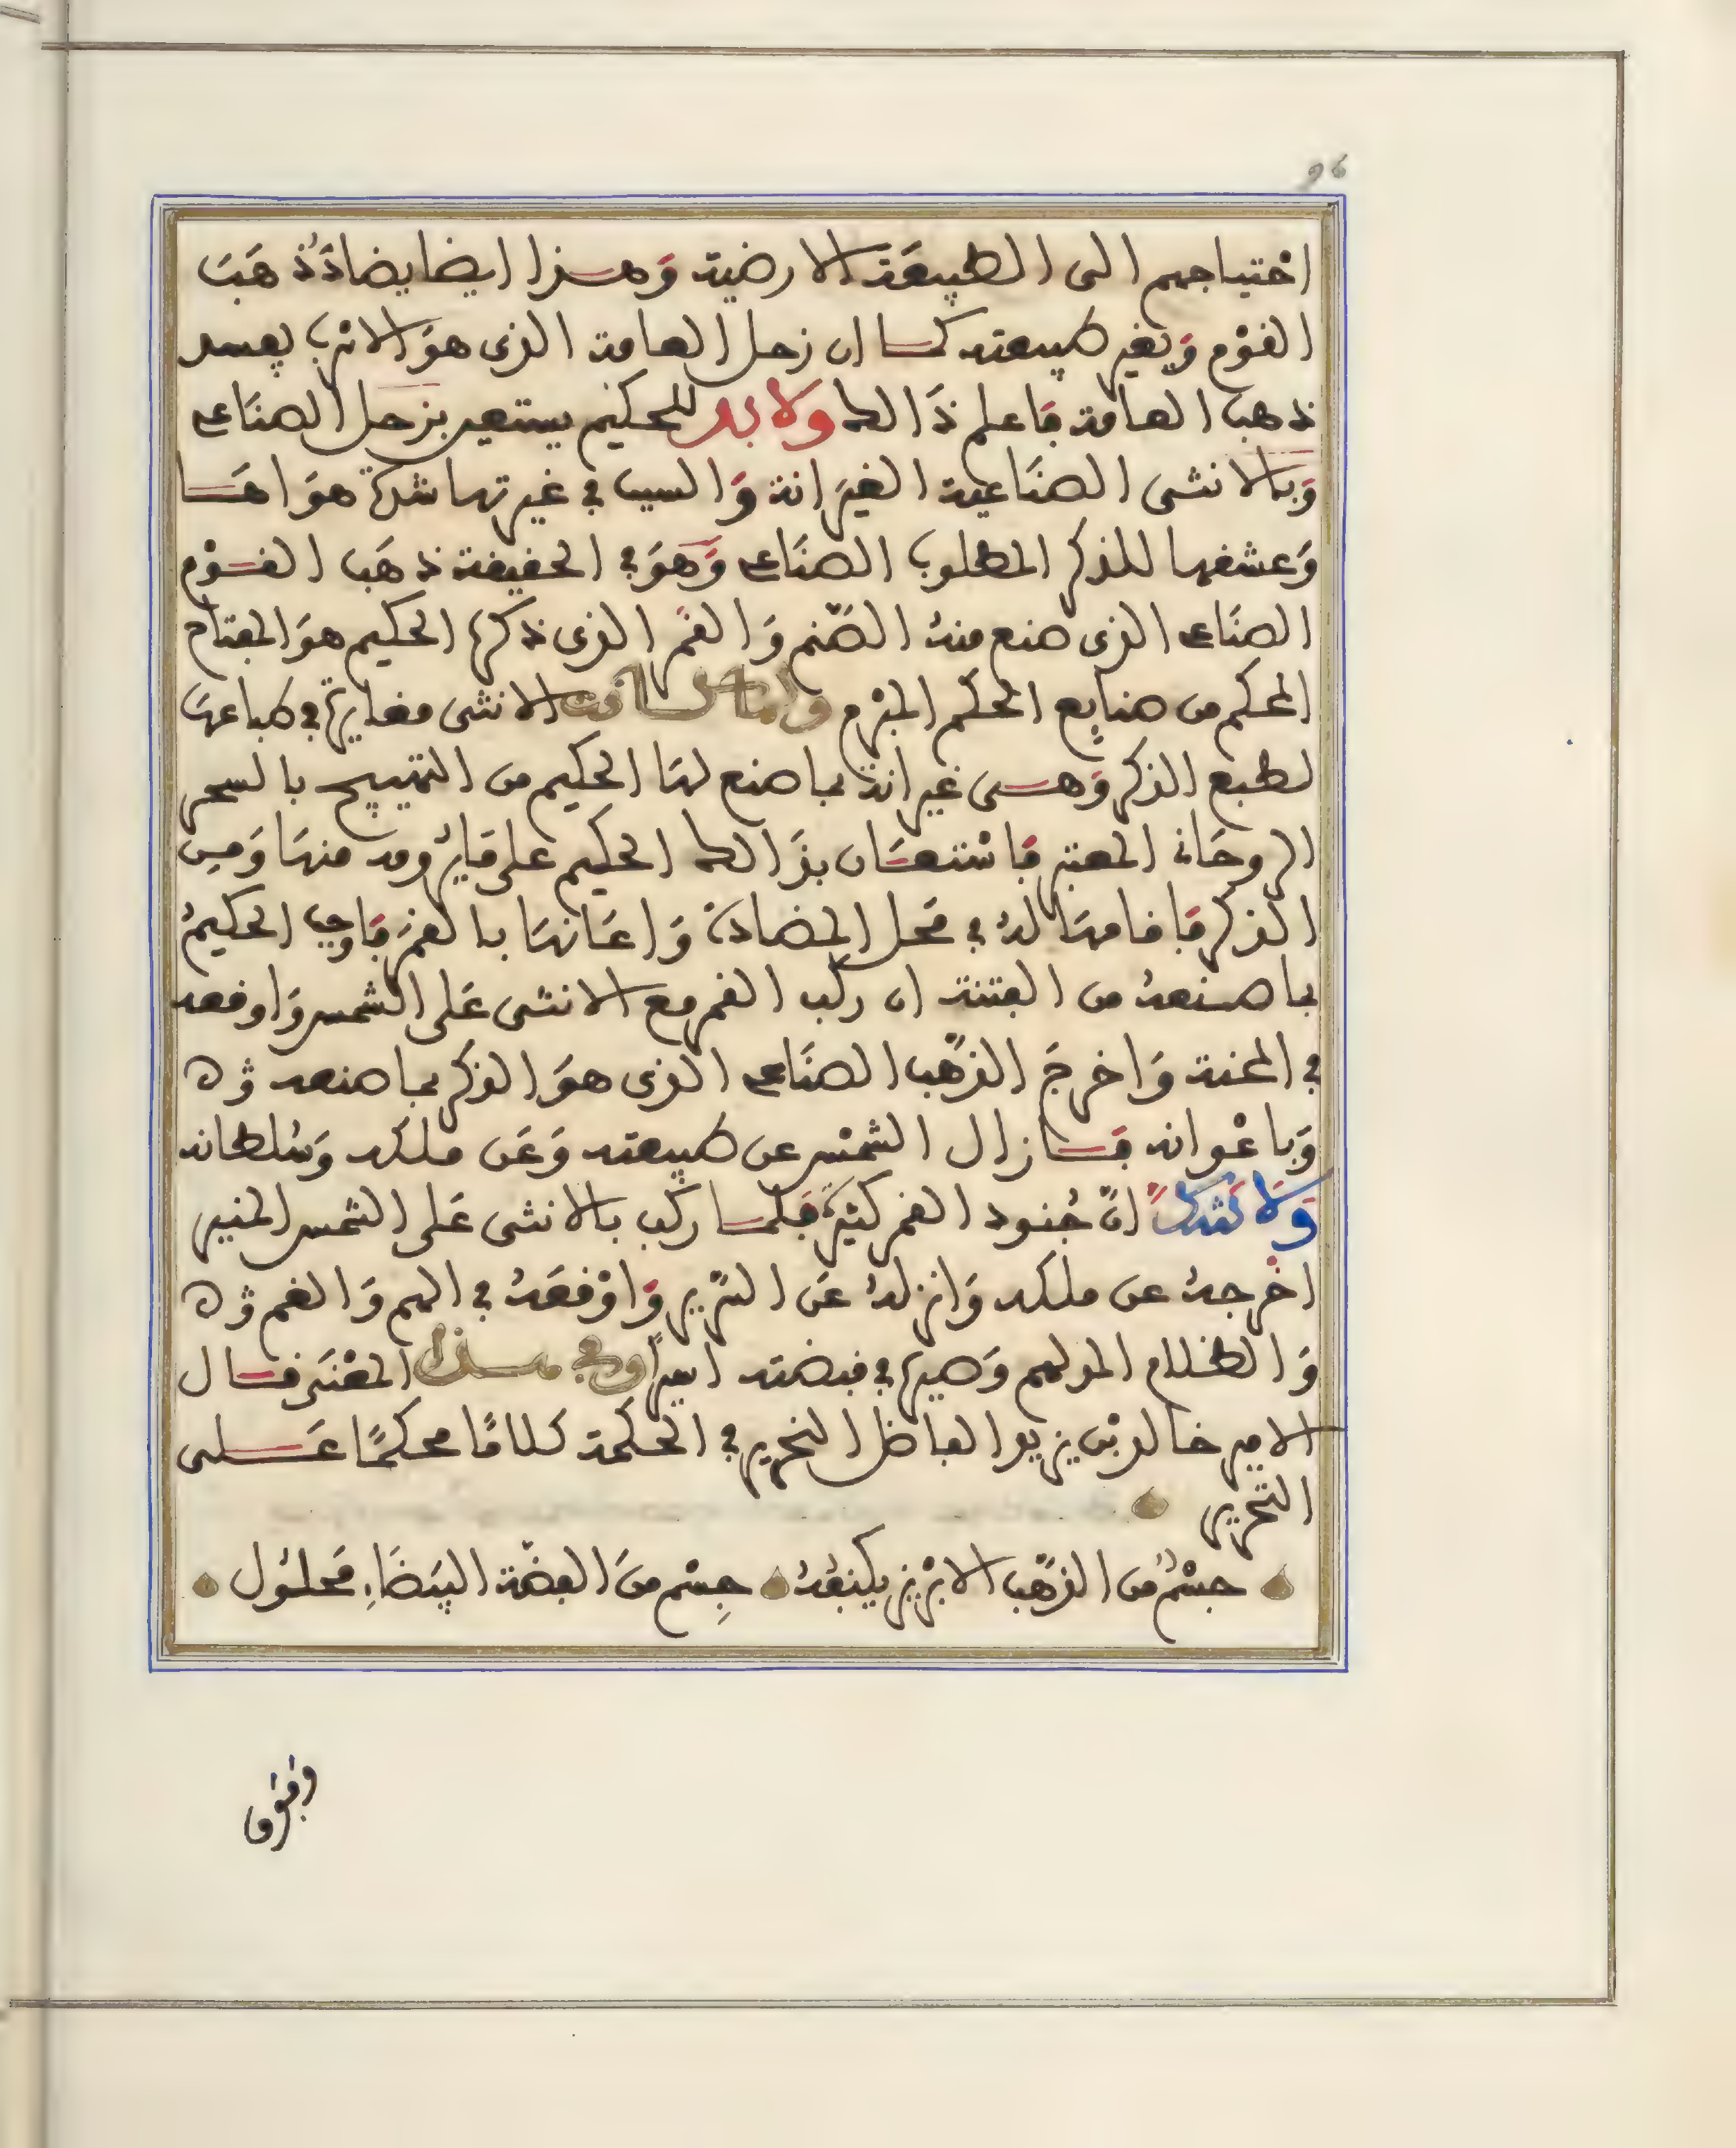 96
احتياجهم الى الطبيعة الارضية وهذا ايضا يضادد ذهب
القوم ويغير طبيعته كما ان زحل العامة الذى هو الانرب يفسد
ذهب العامة فاعلم ذالك ولا بد للحكيم يستعين بزحل الصناعى
وبالانثى الصناعية الغيرانة والسبب في غيرتها شدة هواها
وعشقها للذكر المطلوب الصناعى وهو في الحقيقة ذهب القوم
الصناعى الذى صنع منه الصنم والقمر الذى ذكره الحكيم هو المفتاح
المحكم من صنايع الحكم المبرم ولما كانت الانثى مغايرة في طباعها
لطبع الذكر وهى غيرانة بما صنع لها الحكيم من التهييج بالسحر
الروحانى المعتبر فاستعان بذالك الحكيم على ما يرومه منها ومن
الذكر فاقامها له في محل المضادة واعانها بالقمر فاوجب الحكيم
بما صنعه من الفتنة ان ركب القمر مع الانثى على الشمس واوقعه
في المحنة واخرج الذهب الصناعى الذى هو الذكر بما صنعه ذره
وباعوانه فازال الشمس عن طبيعته وعن ملكه وسلطانه
ولا تشك ان جنود القمر كثيرة فلما ركب بالانثى على الشمس المنير
اخرجه عن ملكه وانزله عن السرير واوقعه في الهم والغم
والظلام المولهم وصيره في قبضته اسيرا وفى هذا المعنى قال
الامير خالد بن يزيد الفاضل النحرير في الحكمة كلاما محكما على
التحرير
جسم من الذهب الابريز يكنفه جسم من الفضة البيضاء محلول
وفوق